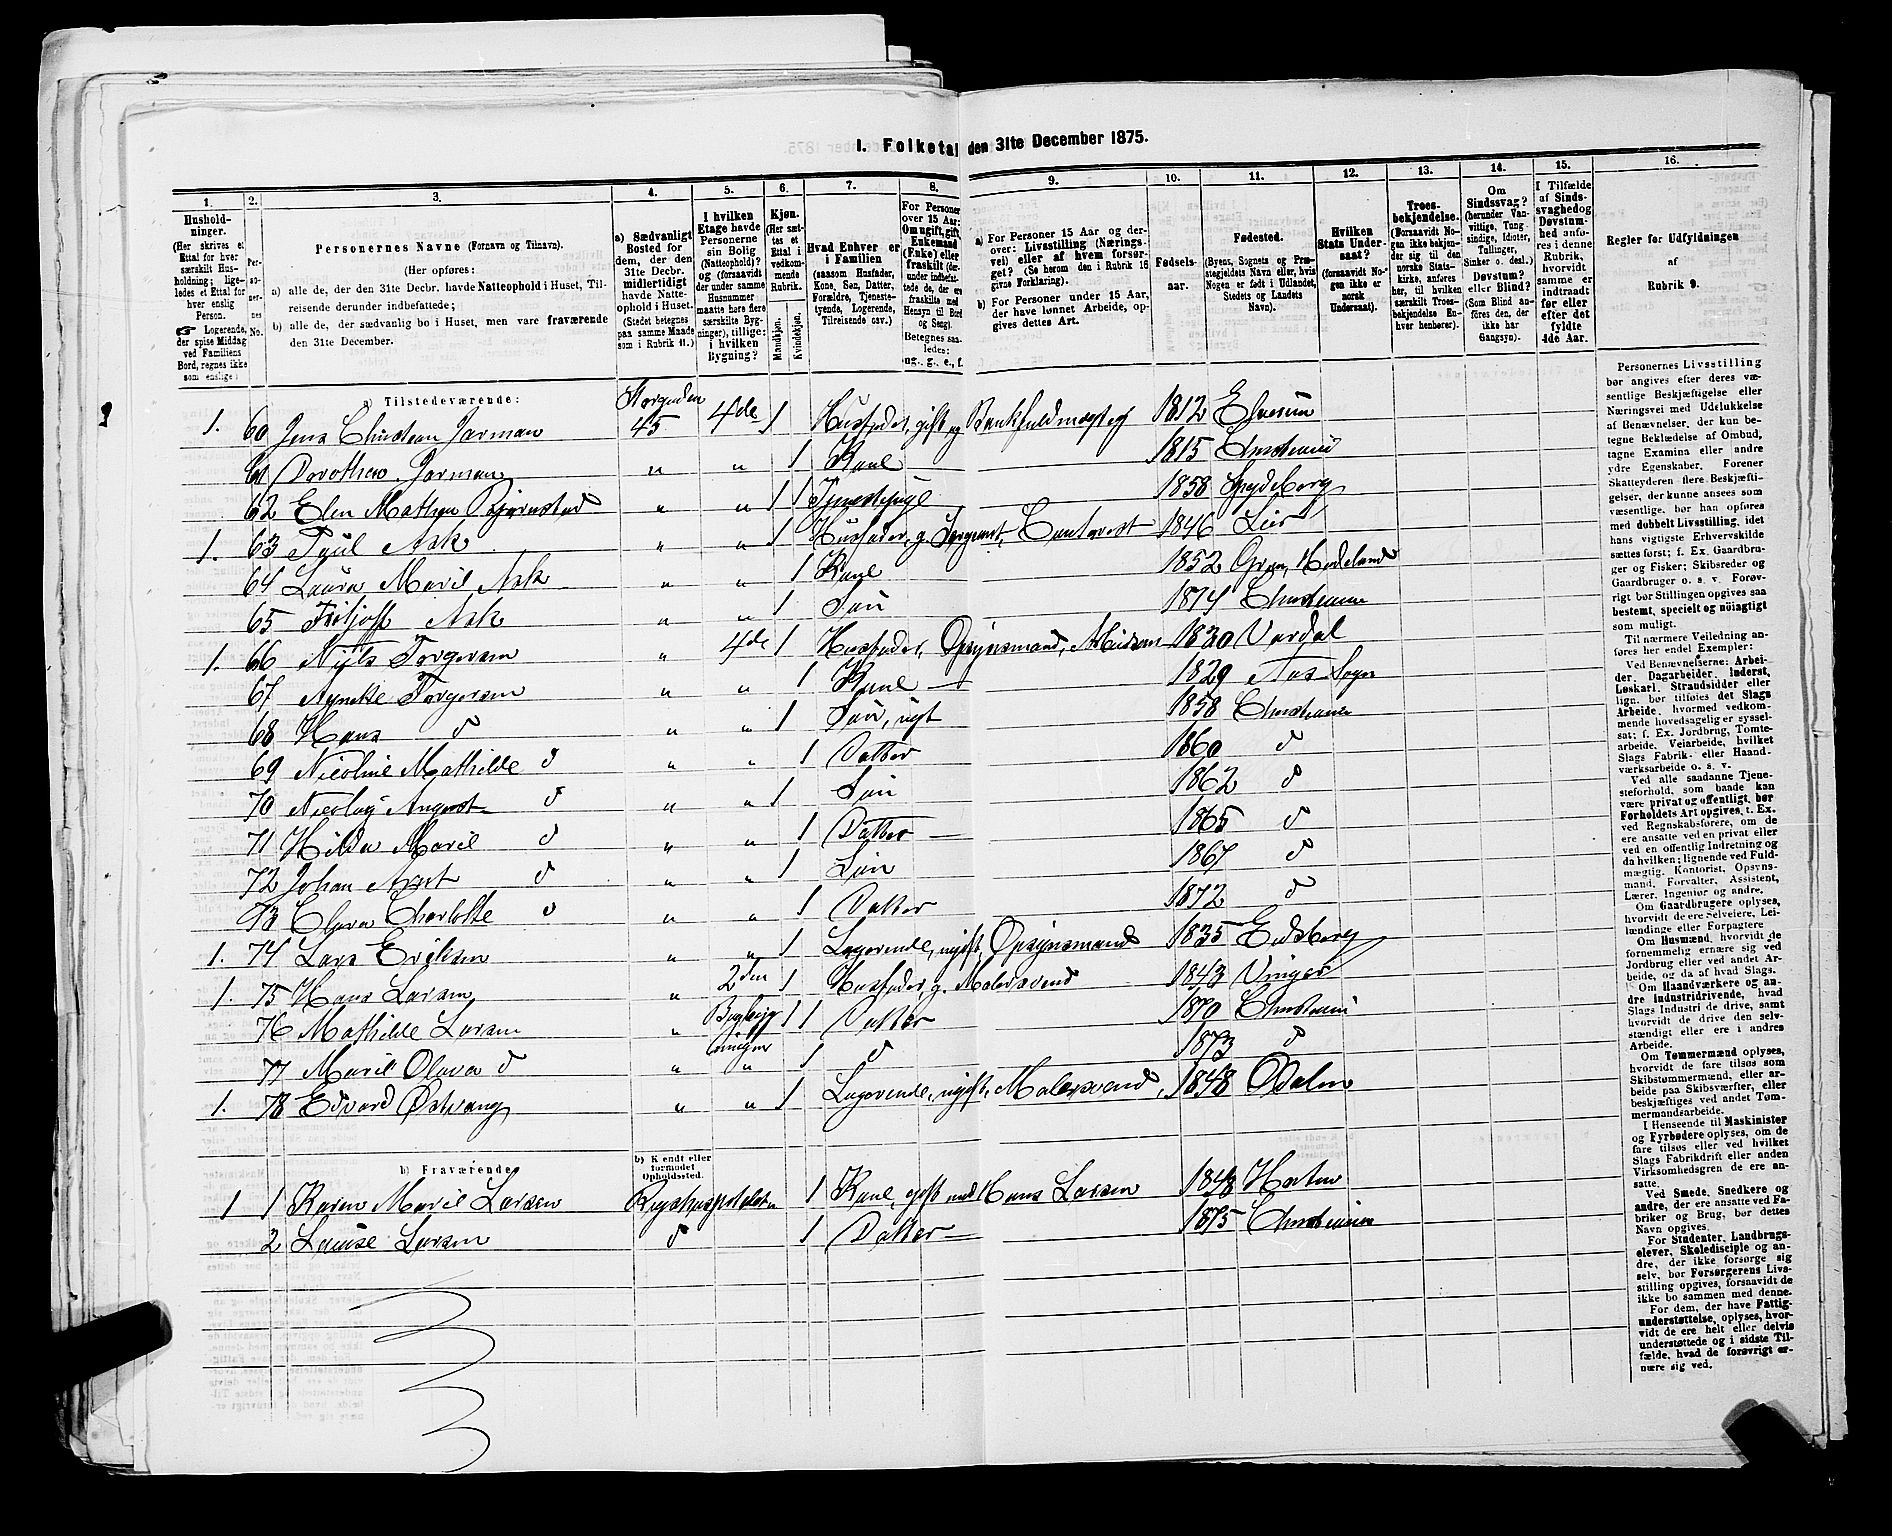 1. Folketal den 31te December 1875.
1. 2. 3. 4. 5. 6. 7. 8. 9. 10. 11. 12. 13. 14. 15. 16.
Hushold-
ninger.
(Her skrives et
Ettal for hver
særskilt Hus-
holdning; lige-
ledes et Ettal for
hver enslig
Person.
☛ Logerende,
der spise Middag
ved Familiens
Bord, regnes ikke
som enslige.)
Per-
so-
ner-
nes
No.
Personernes Navne (Fornavn og Tilnavn).
(Her opføres:
a) alle de, der den 31te Decbr. havde Natteophold i Huset, Til-
reisende derunder indbefattede;
b) alle de, der sædvanlig bo i Huset, men vare fraværende
den 31te December.
a) Sædvanligt
Bosted for
dem, der den
31te Decbr.
midlertidigt
havde Natte-
ophold i Huset.
(Stedet betegnes
paa samme Maade
som i Rubrik 11.)
I hvilken
Etage havde
Personerne
sin Bolig
(Natteophold)?
og (forsaavidt
der under samme
Husnummer
maatte høre flere
særskilte Byg-
ninger), tillige:
i hvilken
Bygning?
Kjøn.
(Her sæt-
tes et
Ettal i
vedkom-
mende
Rubrik.
Mandkjøn.
Kvindekjøn.
Hvad Enhver er
i Familien
(saasom Husfader,
Kone, Søn, Datter,
Forældre, Tjeneste-
tyende, Logerende,
Tilreisende osv.)
For Personer
over 15 Aar:
Om ugift, gift,
Enkemand
(Enke) eller
fraskilt (der-
under indbefat-
tede de, der ere
fraskilte med
Hensyn til Bord
og Seng).
Betegnes saa-
ledes:
ug., g., e., f.
a) For Personer 15 Aar og der-
over: Livsstilling (Nærings-
vei) eller af hvem forsør-
get? (Se herom den i Rubrik 16
givne Forklaring).
b) For Personer under 15 Aar,
der have lønnet Arbeide, op-
gives dettes Art.
Fødsels-
aar.
Fødested.
(Byens, Sognets og Præ-
stegjeldets Navn eller, hvis
Nogen er født i Udlandet,
Stedets og Landets
Navn).
Hvilken
Stats Under-
saat?
(forsaavidt No-
gen ikke er
norsk
Undersaat).
Troes-
bekjendelse.
(Forsaavidt No-
gen ikke bekjen-
der sig til den
norske Stats-
kirke, anføres
her, til hvilken
særskilt Troes-
bekjendelse En-
hver henhører).
Om
Sindssvag?
(herunder Van-
vittige, Tung-
sindige, Idioter,
Tullinger,
Sinker o. desl.).
Døvstum?
eller Blind?
(Som Blind an-
føres den, der
ikke har
Gangsyn).
I Tilfælde
af Sinds-
svaghed og
Døvstum-
hed anfø-
res i denne
Rubrik,
hvorvidt
samme er
indtraadt
før eller
efter det
fyldte
4de Aar.
Regler for Udfyldningen
af
Rubrik 9.
a) Tilstedeværende:
1. 60 Jens Christian Jorman Storgaden 45 4de 1 Husfader, gift og Bankfuldmægtig 1812 Elverum
61 Dorothea Jorman " " 1 Kone 1815 Christiania
62 Elen Mathea Bjørnstad " " 1 Tjenestepige 1858 Spydeberg
1. 63 Paul Ask " " 1 Husfader, g. Sergeant, 1846 Lier
64 Laura Marie Ask " " 1 Kone 1852 Gran, Hadeland
65 Fritjoff Ask " " 1 Søn 1874 Christiania
1. 66 Niels Torgersen " 4de 1 Husfader, Opsynsmand, 1830 Vardal
67 Torgersen " " 1 Kone 1829 Aas Sogn
68 Hans d " " 1 Søn, ugt 1858 Christiania
69 Nicoline Mathilde d " " 1 Datter 1860 d
70 Nicolay August d " " 1 Søn 1862 d
71 Hilda Marie d " " 1 Datter 1865 d
72 Johan Arnt d " " 1 Søn 1867 d
73 Clara Charlotte d " " 1 Datter 1872 d
1. 74 Lars Eriksen " " 1 Logerende, ugift, Opsynsmand 1835 Eidsberg
1. 75 Hans Larsen " 2den 1 Husfader, g. Malersvend 1843 Vinger
76 Mathilde Larsen " Bagbyg 1 1 Datter 1870 Christiania
ningen
77 Marie Olava d " " 1 d 1873 d
1. 78 Edvard Østvang " " 1 Logerende, ugift, Malersvend, 1848 Odalen
b) Fraværende:
b) Kjendt eller
formodet
Opholdssted.
1 1 Karen Marie Larsen Rigshospitalet 1 Kone, gift med Hans Larsen 1843 Horten
2 Louise Larsen d 1 Datter 1875 Christiania
Personernes Livsstilling
bør angives efter deres væ-
sentlige Beskjæftigelse eller
Næringsvei med Udelukkelse
af Benævnelser, der kun be-
tegne Beklædelse af Ombud,
tagne Examina eller andre
ydre Egenskaber. Forener
Skatteyderen flere Beskjæfti-
gelser, der kunne ansees som
væsentlige, bør han opføres
med dobbelt Livsstilling, idet
hans vigtigste Erhvervskilde
sættes først; f. Ex. Gaardbru-
ger og Fisker; Skibsreder og
Gaardbruger o. s. v. Forøv-
rigt bør Stillingen opgives saa
bestemt, specielt og nøiagtigt
som muligt.
Til nærmere Veiledning an-
føres her endel Exempler:
Ved Benævnelserne: Arbei-
der, Dagarbeider, Inderst,
Løskarl, Strandsidder eller
lign. bør tilføies det Slags
Arbeide, hvormed vedkom-
mende hovedsagelig er syssel-
sat; f. Ex. Jordbrug, Tomte-
arbeide, Veiarbeide, hvilket
Slags Fabrik- eller Haand-
værksarbeide o. s. v.
Ved alle saadanne Tjene-
steforhold, som baade kan
være privat og offentligt, bør
Forholdets Art opgives, t. Ex.
ved Regnskabsførere, om de
ere ansatte ved en privat eller
ved en offentlig Indretning og
da hvilken; lignende ved Fuld-
mægtig, Kontorist, Opsyns-
mand, Forvalter, Assistent,
Lærer, Ingeniør og andre.
Om Gaardbrugere oplyses,
hvorvidt de ere Selveiere, Lei-
lændinge eller Forpagtere
Om Husmænd, hvorvidt de
fornemmelig ernære sig ved
Jordbrug eller ved andet Ar-
beide, og da af hvad Slags.
Om Haandværkere og an-
dre Industridrivende, hvad
Slags Industri de drive, samt
hvorvidt de drive den selv-
stændigt eller ere i andres
Arbeide.
Om Tømmermænd oplyses,
hvorvidt de fare tilsøs som
Skibstømmermænd, eller ar-
beide paa Skibsværfter, eller
beskjæftiges ved andet Tøm-
mermandsarbeide.
I Henseende til Maskinister
og Fyrbødere oplyses, om de
fare tilsøs eller ved hvilket
Slags Fabrikdrift eller anden
Virksomhedsgren de ere an-
satte.
Ved Smede, Snedkere og
andre, der ere ansatte ved Fa-
briker og Brug, bør dettes
Navn opgives.
For Studenter, Landbrugs-
elever, Skoledisciple og an-
dre, der ikke forsørge sig
selv, bør Forsørgerens Livs-
stilling opgives, forsaavidt de
ikke bo sammen med denne.
For dem, der have Fattig-
understøttelse, oplyses, hvor-
vidt de ere helt eller delvis
understøttede og i sidste Til-
fælde, hvad de forøvrigt er-
nære sig ved.